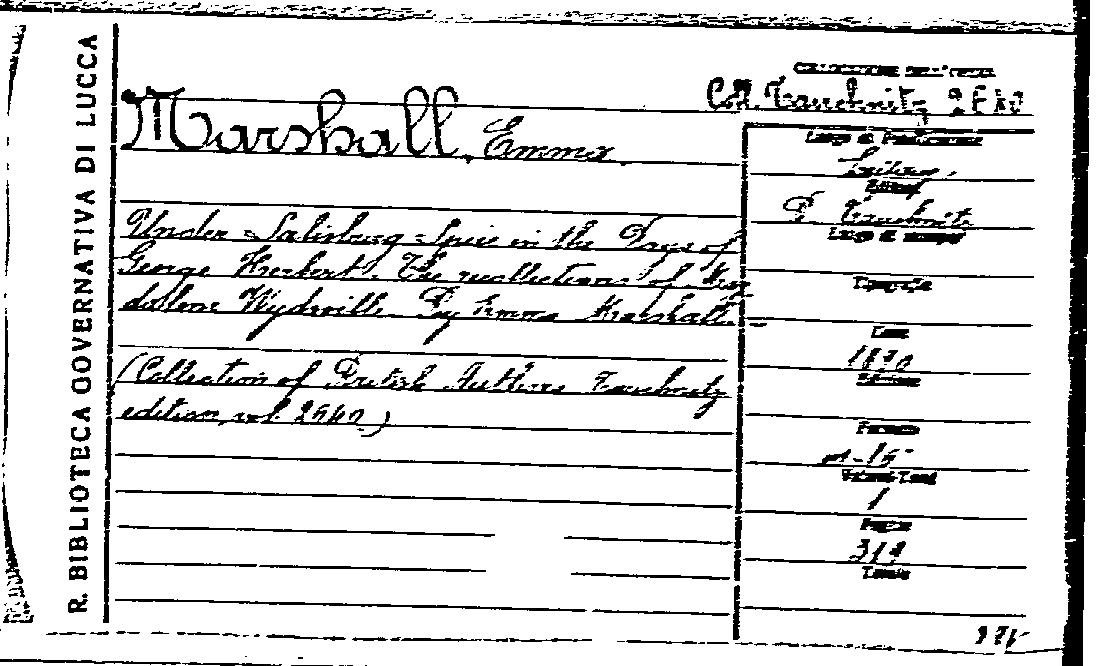 R. BIBLIOTECA GOVERNATIVA DI LUCCA
Coll. Tauchnitz
Marshall, Emma.
Under Salisbury Spire in the Days of
George Herbert. The recollections of Mag
dalene Wydville. By Emma Marshall.
(Collection of British Authors Tauchnitz
edition, vol. 2640)
Luogo di Pubblicazione
Leipzig.
Editore
B. Tauchnitz
Luogo di stampa
Tipografia
1890
Edizione
Formato
-16
1
Pagine
Tavole